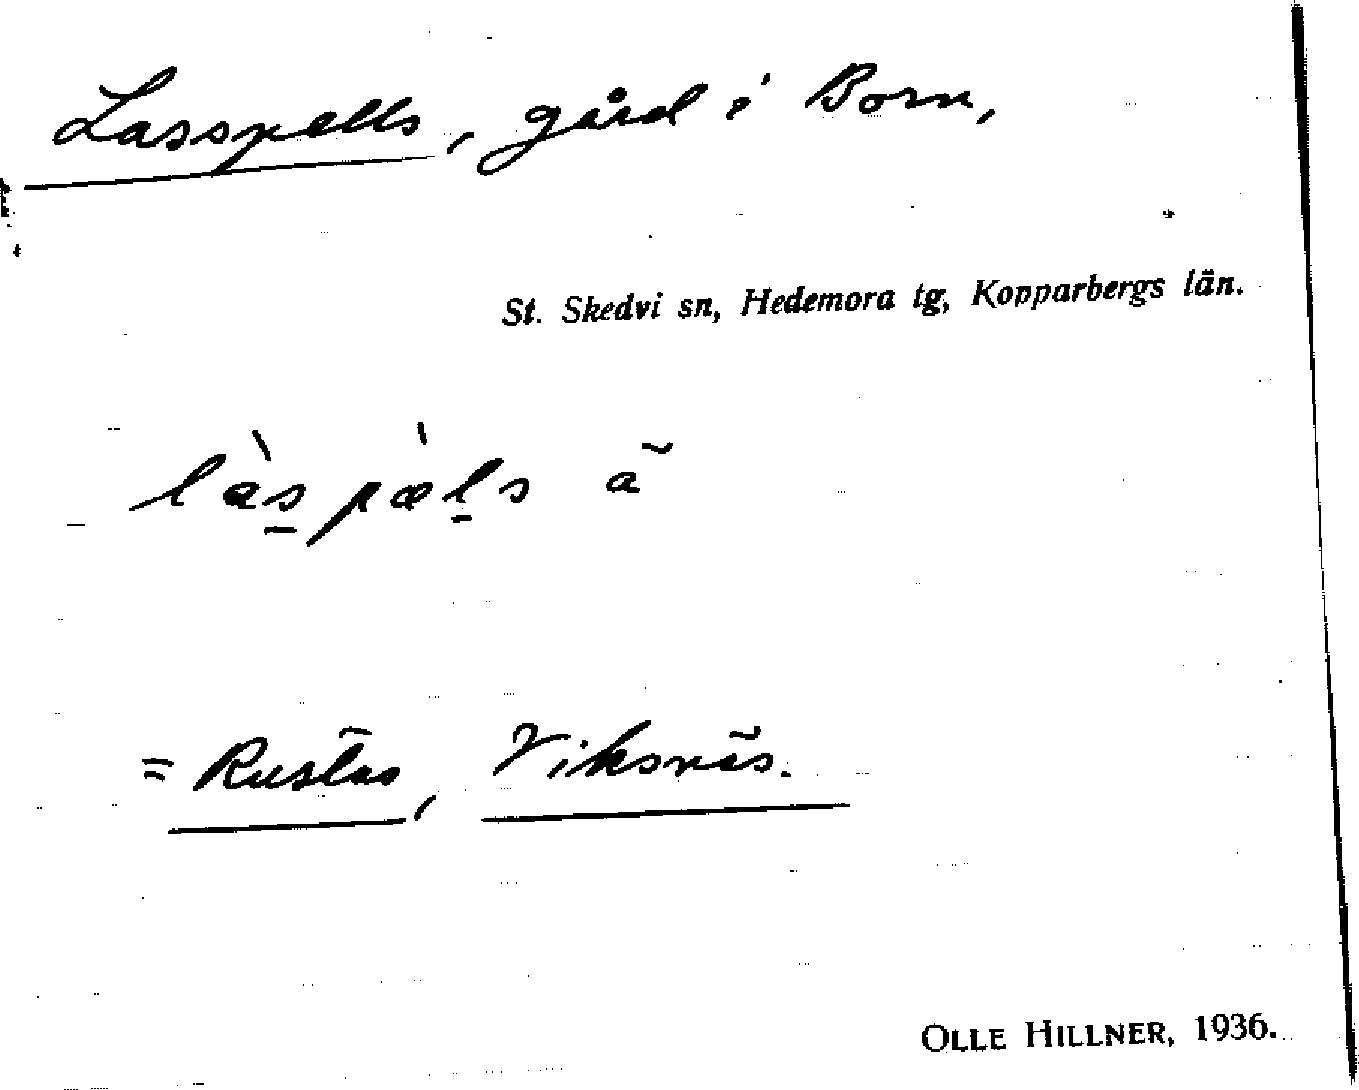 Lasspells, gård i Born,
St. Skedvi sn, Hedemora tg, Kopparbergs län.
làspæ̀ls ã
= Rustas, Viksnäs.
OLLE HILLNER, 1936.